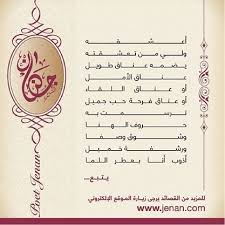 أعشقه
ولي من تعشقته
يضمه عناق طويل
عناق الأمل
أو عناق اللقاء
أو عناق فرحة حب جميل
يرسمت به
حروف الهنا
وشوق وصفا
ورشفة
أذوب أنا بعطر اللما
يتبع...
جنان
Poet Jenan
للمزيد من القصائد يرجى زيارة الموقع الإلكتروني
www.jenan.com